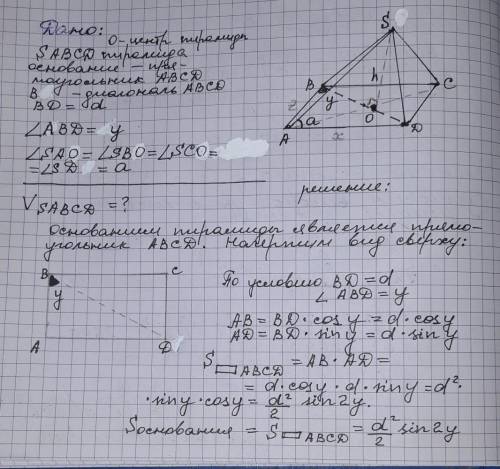 Дано:
О-центр пирамиды
SABCD пирамида
основание - пря-
моугольник ABCD
B - диагональ ABCD
BD = d
∠ABD = y
∠SAO = ∠SBO = ∠SCO =
= ∠SD = a
V SABCD = ?
S
B
C
h
y
z
O
A
a
x
D
решение:
Основанием пирамиды является прямо-
угольник ABCD. Начертим вид сверху:
B
C
y
A
D
По условию BD = d
∠ABD = y
AB = BD · cos y = d · cos y
AD = BD · sin y = d · sin y
S ▭ ABCD = AB · AD =
= d · cos y · d · sin y = d² ·
· sin y · cos y = d²/2 sin 2y.
Sоснования = S ▭ ABCD = d²/2 sin 2y